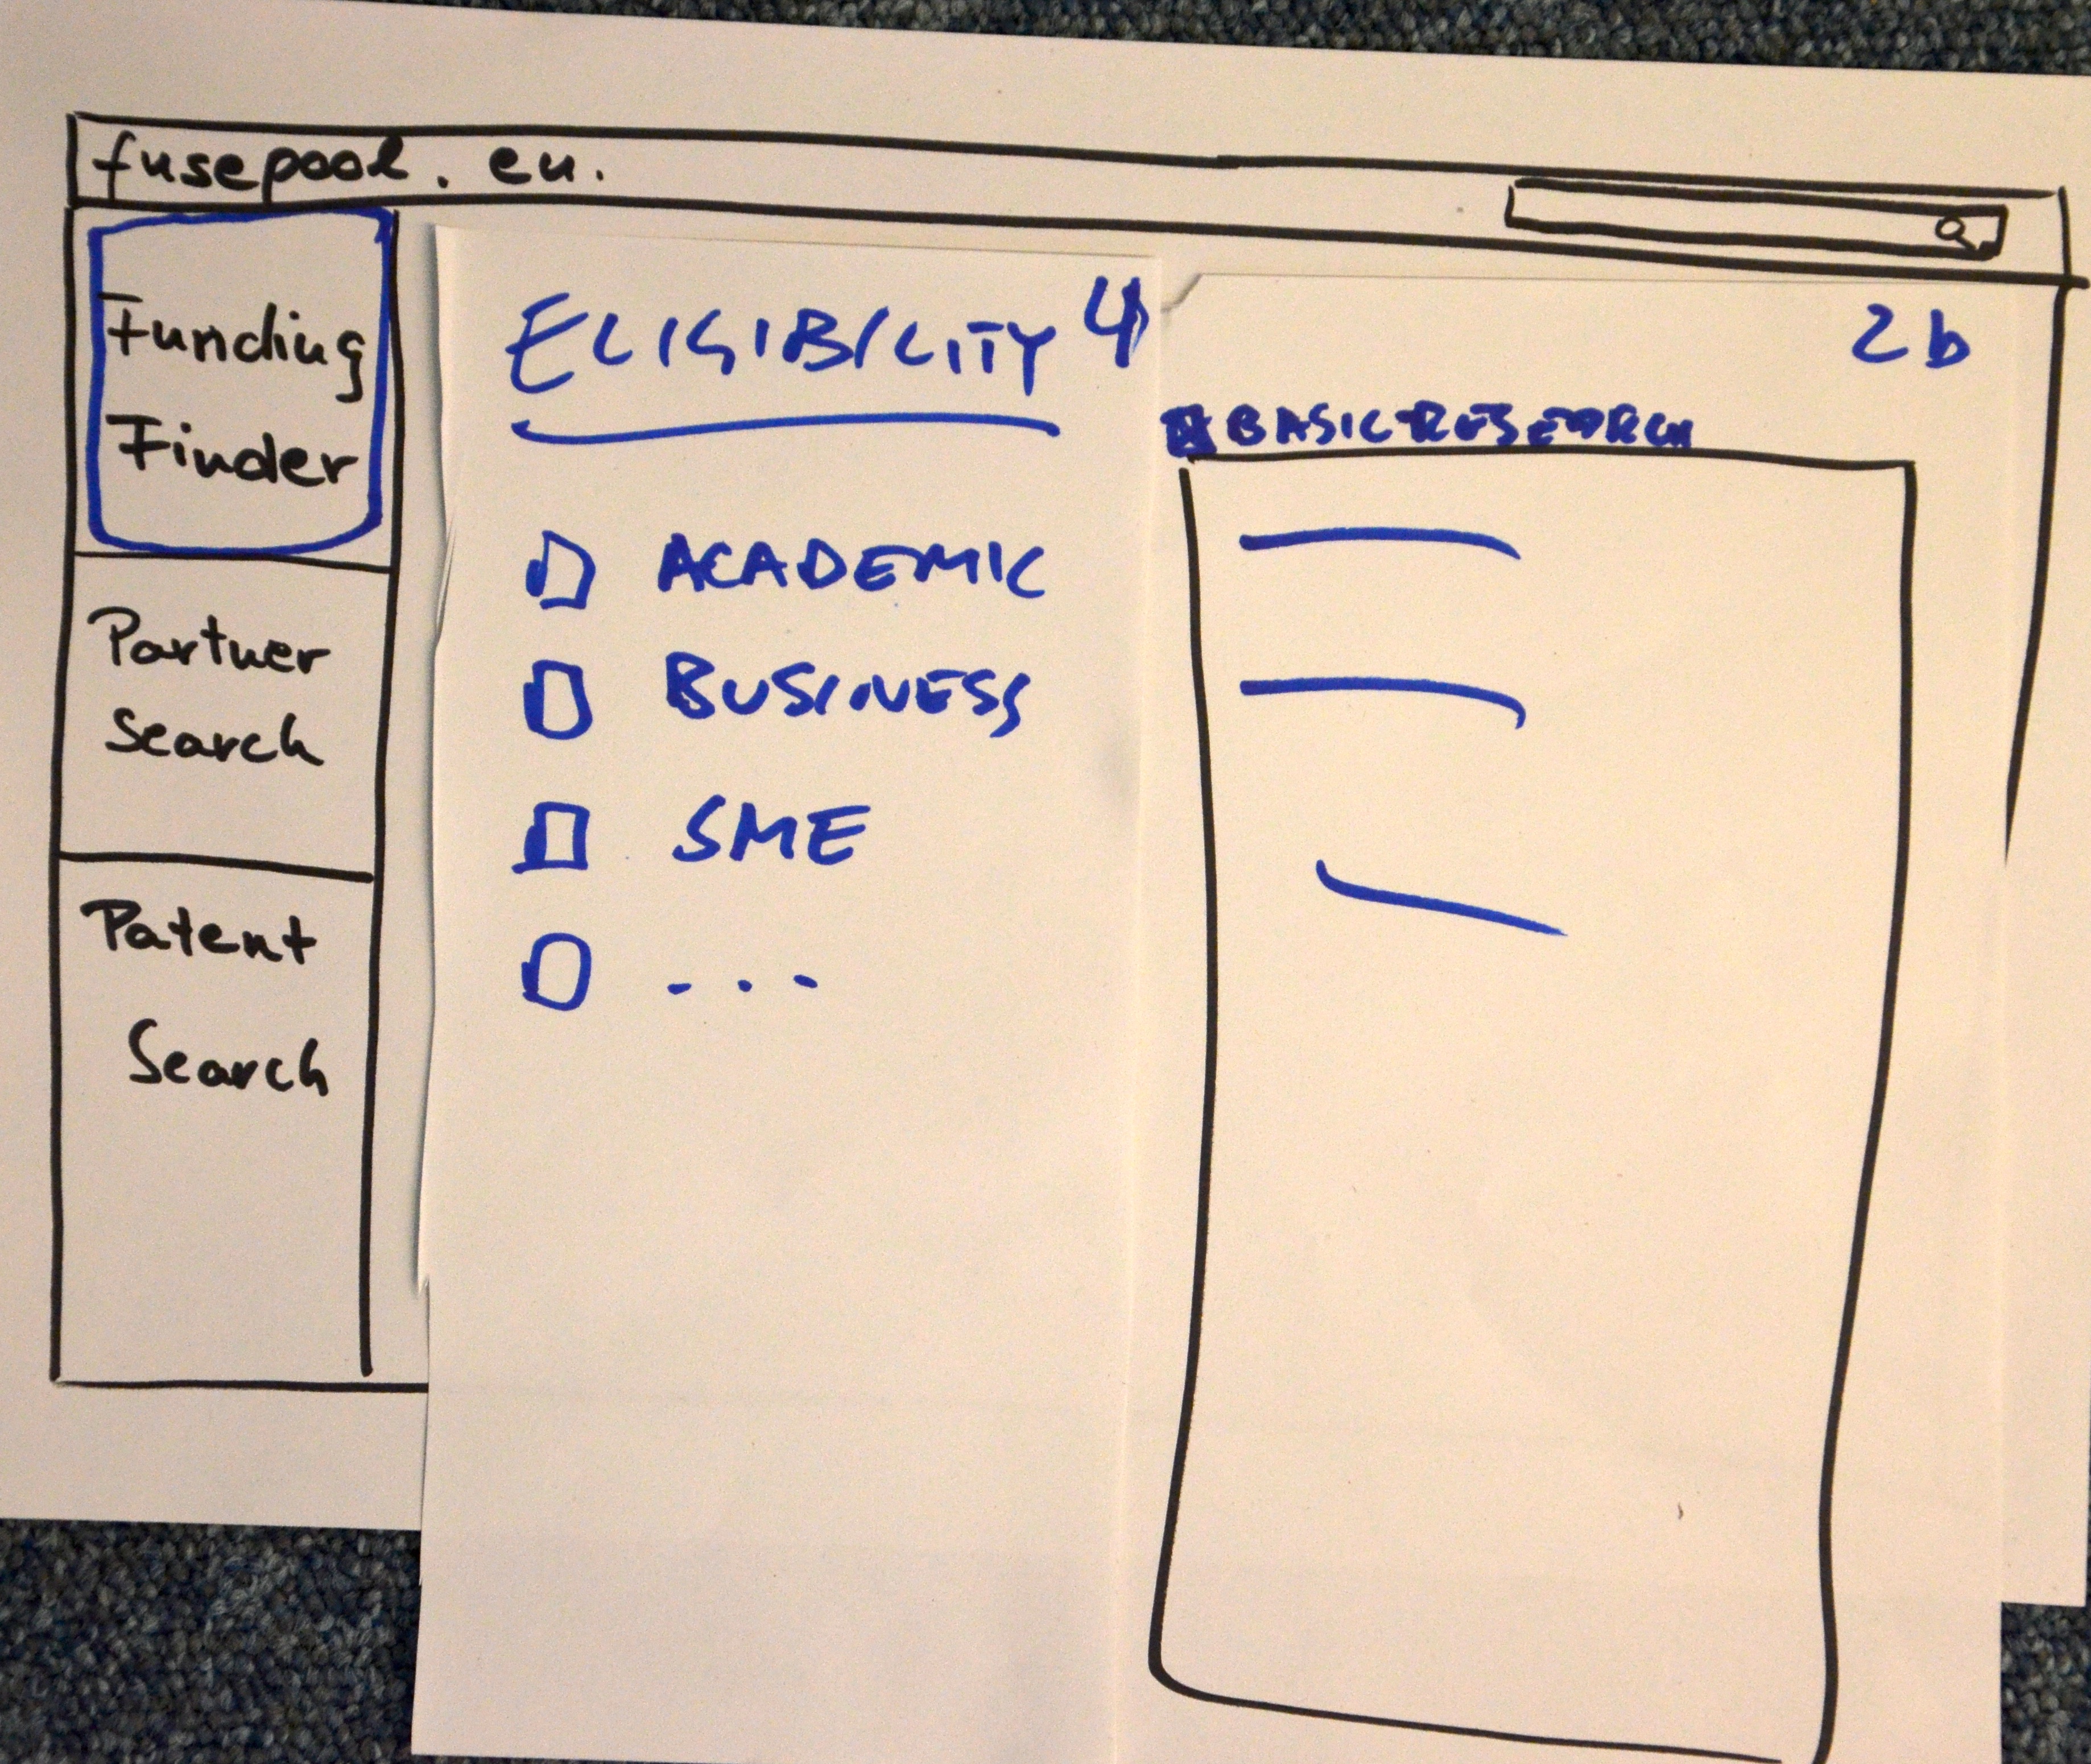 fusepool.eu.
Funding
Finder
Partner
Search
Patent
Search
ELIGIBILITY 4
ACADEMIC
BUSINESS
SME
...
2b
BASIC RESEARCH